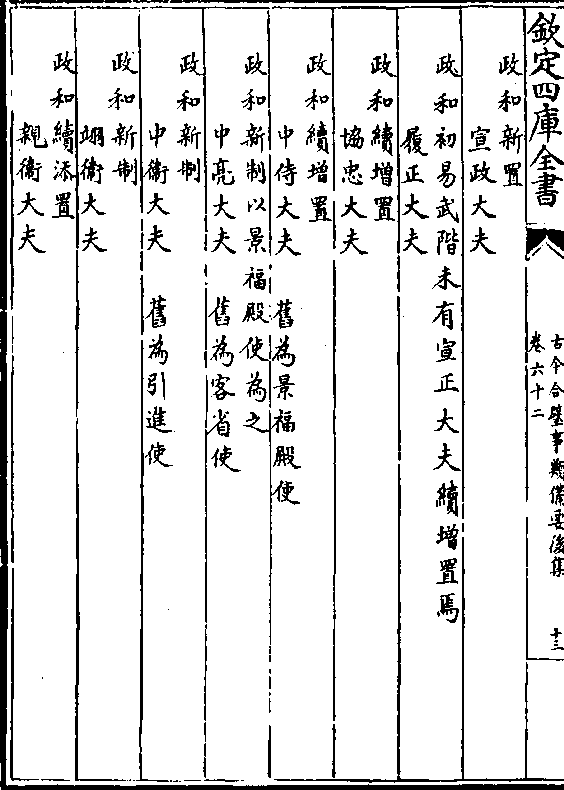 欽定四庫全書
古今合璧事類備要後集
卷六十二
十三
政和新置
宣政大夫
政和初易武階未有宣正大夫續增置焉
履正大夫
政和續增置
協忠大夫
政和續增置
中侍大夫　舊為景福殿使
政和新制以景福殿使為之
中亮大夫　舊為客省使
政和新制
中衛大夫　舊為引進使
政和新制
翊衛大夫
政和續添置
親衛大夫